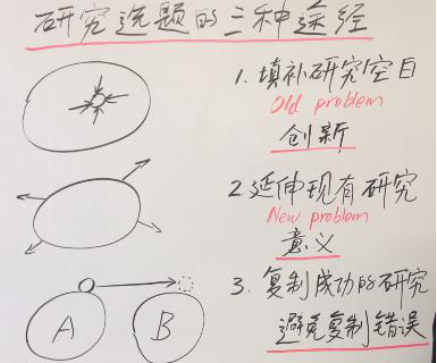 研究选题的三种途径
1. 填补研究空白
Old problem
创新
2 延伸现有研究
New problem
意义
3. 复制成功的研究
避免复制错误
A
B